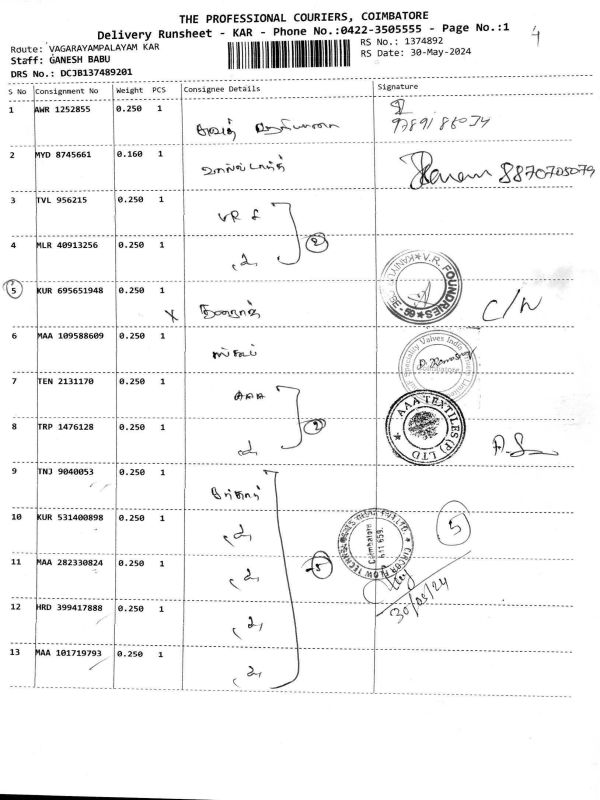 THE PROFESSIONAL COURIERS, COIMBATORE
Delivery Runsheet - KAR - Phone No.:0422-3505555 - Page No.:1
4
Route: VAGARAYAMPALAYAM KAR
RS No.: 1374892
Staff: GANESH BABU
RS Date: 30-May-2024
DRS No.: DCJB137489201
S No Consignment No Weight PCS Consignee Details Signature
1 AWR 1252855 0.250 1
9789186034
2 MYD 8745661 0.160 1
8870705079
3 TVL 956215 0.250 1
VR
2
4 MLR 40913256 0.250 1
V.R. FOUNDRIES
5 KUR 695651948 0.250 1
X
C/N
6 MAA 109588609 0.250 1
Speciality Valves Indo
Coimbatore
7 TEN 2131170 0.250 1
AAA
2
AAA TEXTILES (P) LTD
8 TRP 1476128 0.250 1
9 TNJ 9040053 0.250 1
10 KUR 531400898 0.250 1
Coimbatore
641 659.
5
11 MAA 282330824 0.250 1
5
30/05/24
12 HRD 399417888 0.250 1
13 MAA 101719793 0.250 1